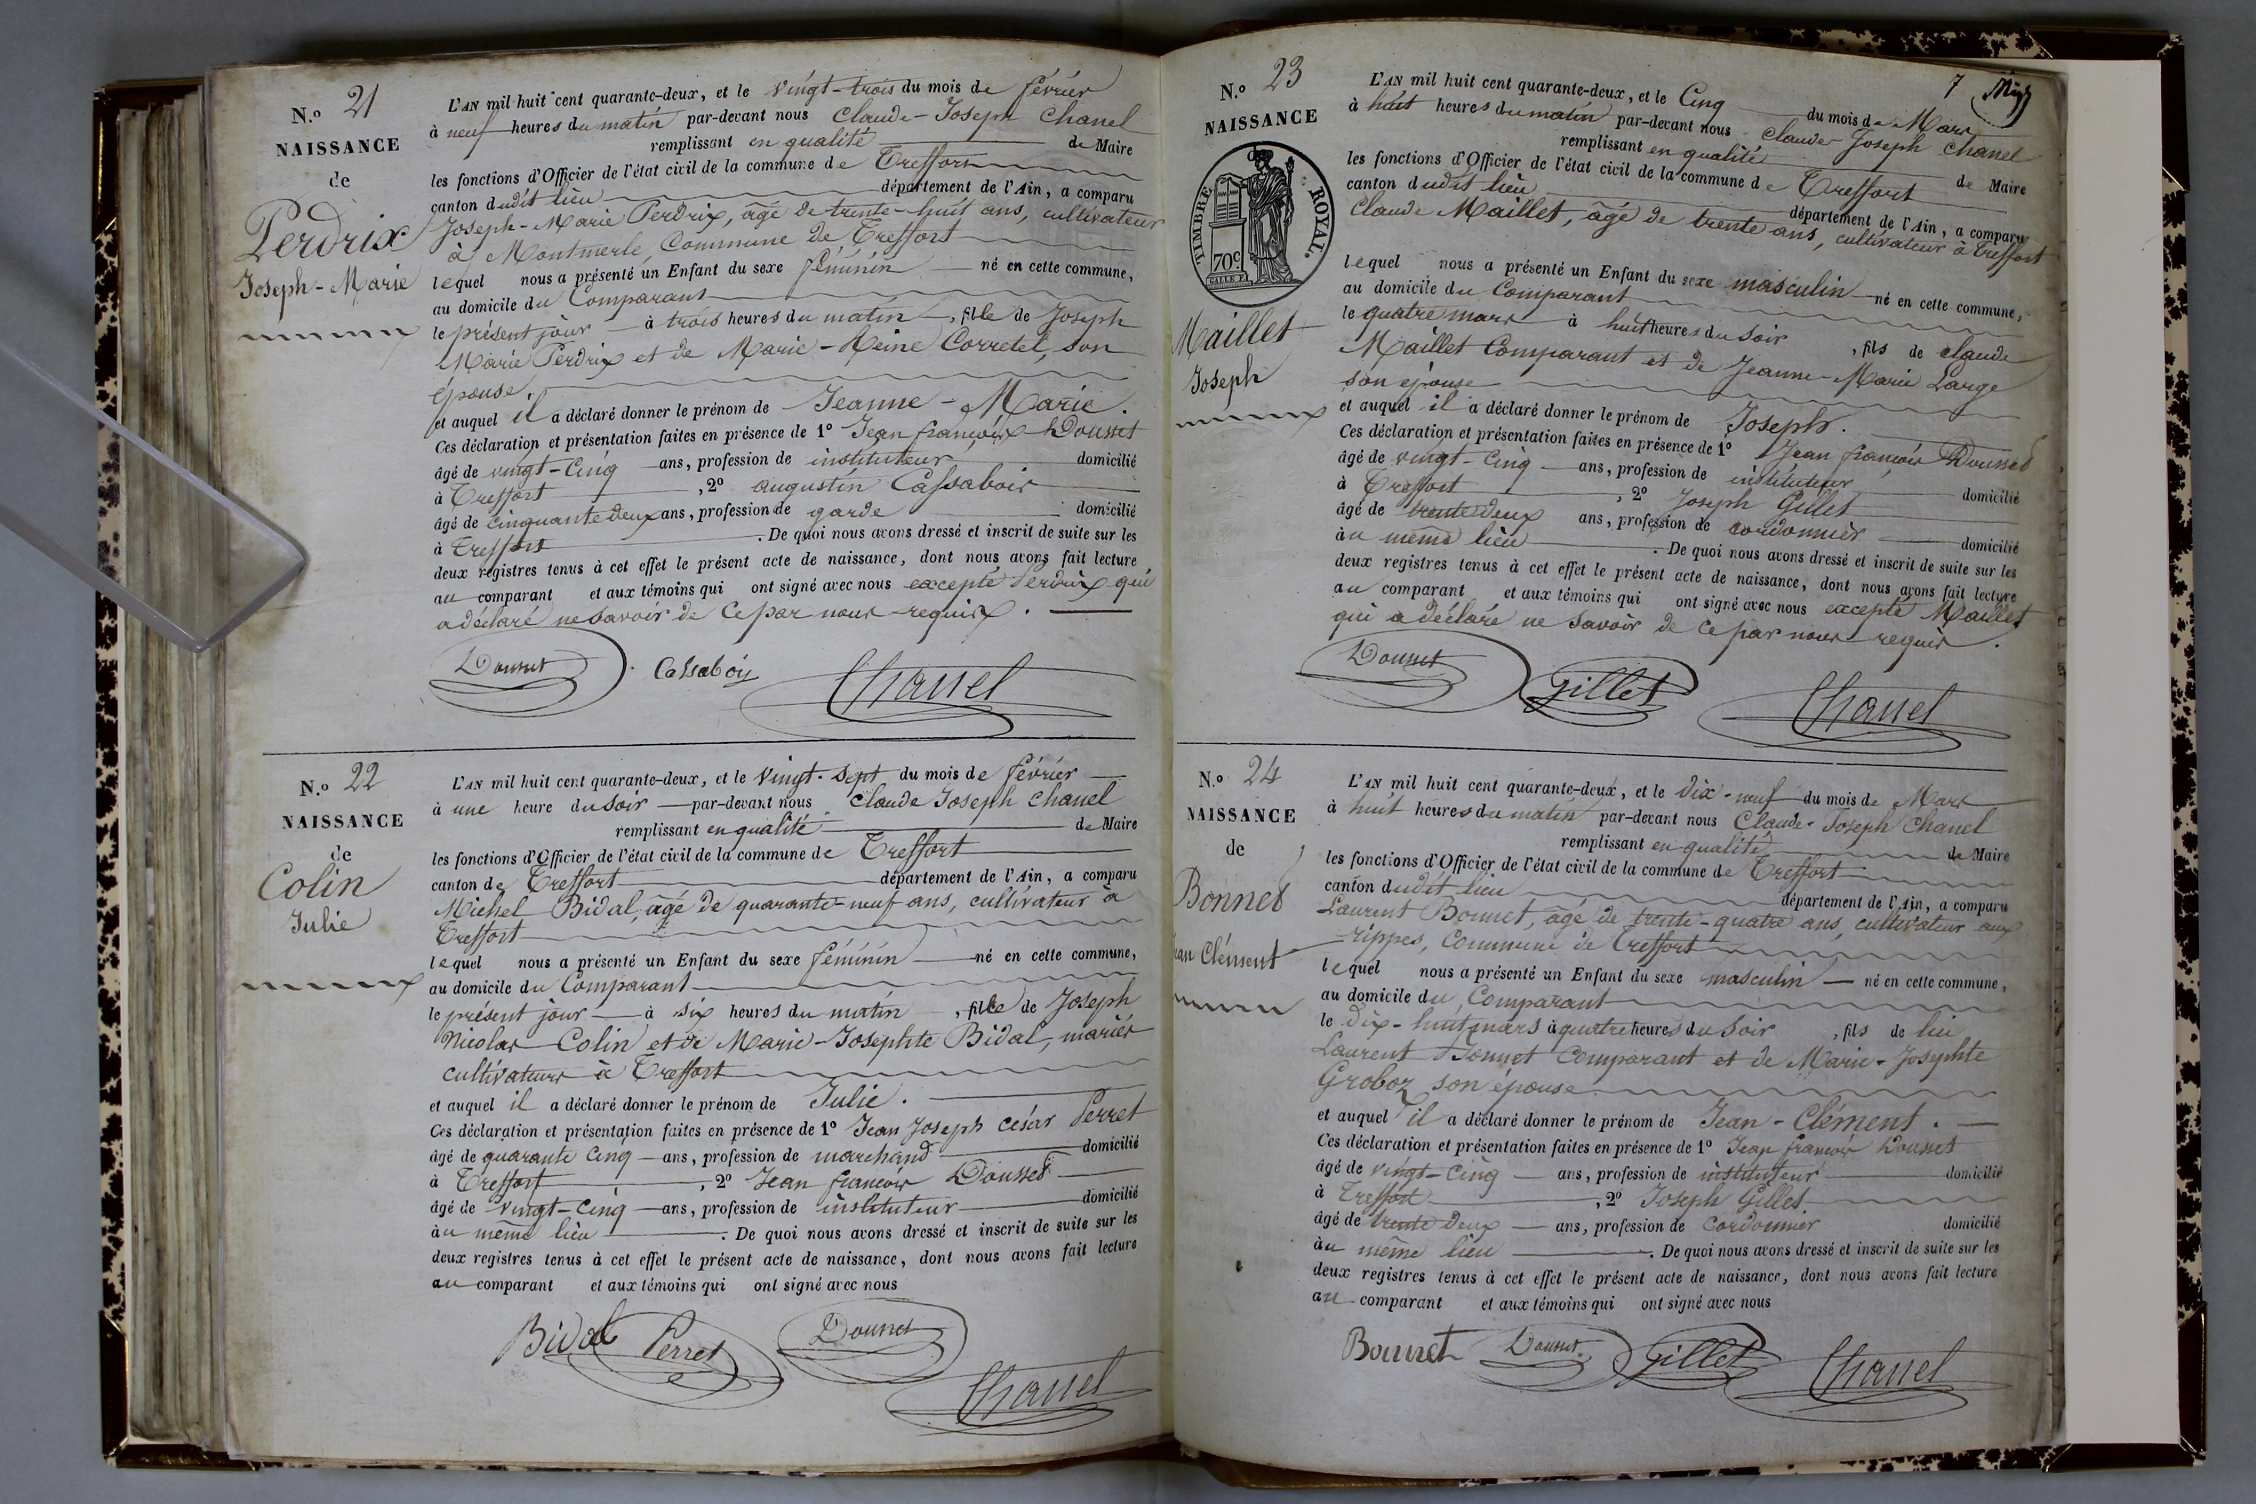 N.º 21
NAISSANCE
de
Perdrix
Joseph-Marie
L'AN mil huit cent quarante-deux, et le vingt-trois du mois de février
à neuf heures du matin par-devant nous Claude-Joseph Chanel
remplissant en qualité de Maire
les fonctions d'Officier de l'état civil de la commune de Treffort
canton dudit lieu département de l'Ain, a comparu
Joseph-Marie Perdrix, âgé de trente-huit ans, cultivateur
à Montmerle, Commune de Treffort
lequel nous a présenté un Enfant du sexe féminin né en cette commune,
au domicile du Comparant
le présent jour à trois heures du matin, fille de Joseph
Marie Perdrix et de Marie-Reine Corretel, son
épouse
et auquel il a déclaré donner le prénom de Jeanne-Marie.
Ces déclaration et présentation faites en présence de 1º Jean françois Dousset
âgé de vingt-cinq ans, profession de instituteur domicilié
à Treffort, 2º augustin Cassabois
âgé de cinquante deux ans, profession de garde domicilié
à Treffort. De quoi nous avons dressé et inscrit de suite sur les
deux registres tenus à cet effet le présent acte de naissance, dont nous avons fait lecture
au comparant et aux témoins qui ont signé avec nous excepté Perdrix qui
a déclaré ne savoir de ce par nous requis.
Dousset Cassaboiy Chanel
N.º 22
NAISSANCE
de
Colin
Julie
L'AN mil huit cent quarante-deux, et le vingt-sept du mois de février
à une heure du soir par-devant nous Claude Joseph Chanel
remplissant en qualité de Maire
les fonctions d'Officier de l'état civil de la commune de Treffort
canton de Treffort département de l'Ain, a comparu
Michel Bidal, âgé de quarante-neuf ans, cultivateur à
Treffort
lequel nous a présenté un Enfant du sexe féminin né en cette commune,
au domicile du Comparant
le présent jour à six heures du matin, fille de Joseph
Nicolas Colin et de Marie-Josephte Bidal, mariés
cultivateurs à Treffort
et auquel il a déclaré donner le prénom de Julie.
Ces déclaration et présentation faites en présence de 1º Jean Joseph César Perret
âgé de quarante cinq ans, profession de marchand domicilié
à Treffort, 2º Jean françois Dousset
âgé de vingt-cinq ans, profession de instituteur domicilié
au même lieu. De quoi nous avons dressé et inscrit de suite sur les
deux registres tenus à cet effet le présent acte de naissance, dont nous avons fait lecture
au comparant et aux témoins qui ont signé avec nous
Bidal Perret Dousset
Chanel
7
N.º 23
NAISSANCE
TIMBRE ROYAL
70 c.
Maillet
Joseph
L'AN mil huit cent quarante-deux, et le Cinq du mois de Mars
à huit heures du matin par-devant nous Claude-Joseph Chanel
remplissant en qualité de Maire
les fonctions d'Officier de l'état civil de la commune de Treffort
canton dudit lieu département de l'Ain, a comparu
Claude Maillet, âgé de trente ans, cultivateur à Treffort
lequel nous a présenté un Enfant du sexe masculin né en cette commune,
au domicile du Comparant
le quatre mars à huit heures du soir, fils de Claude
Maillet Comparant et de Jeanne-Marie Large
son épouse
et auquel il a déclaré donner le prénom de Joseph.
Ces déclaration et présentation faites en présence de 1º Jean françois Dousset
âgé de vingt-cinq ans, profession de instituteur domicilié
à Treffort, 2º Joseph Gillet
âgé de trente deux ans, profession de cordonnier domicilié
au même lieu. De quoi nous avons dressé et inscrit de suite sur les
deux registres tenus à cet effet le présent acte de naissance, dont nous avons fait lecture
au comparant et aux témoins qui ont signé avec nous excepté Maillet
qui a déclaré ne savoir de ce par nous requis.
Dousset Gillet Chanel
N.º 24
NAISSANCE
de
Bonnet
Jean Clément
L'AN mil huit cent quarante-deux, et le dix-neuf du mois de Mars
à huit heures du matin par-devant nous Claude-Joseph Chanel
remplissant en qualité de Maire
les fonctions d'Officier de l'état civil de la commune de Treffort
canton dudit lieu département de l'Ain, a comparu
Laurent Bonnet, âgé de trente-quatre ans, cultivateur aux
rippes, Commune de Treffort
lequel nous a présenté un Enfant du sexe masculin né en cette commune,
au domicile du Comparant
le dix-huit mars à quatre heures du soir, fils de lui
Laurent Bonnet Comparant et de Marie-Josephte
Groboz son épouse
et auquel il a déclaré donner le prénom de Jean-Clément.
Ces déclaration et présentation faites en présence de 1º Jean françois Dousset
âgé de vingt-cinq ans, profession de instituteur domicilié
à Treffort, 2º Joseph Gillet
âgé de trente deux ans, profession de Cordonnier domicilié
au même lieu. De quoi nous avons dressé et inscrit de suite sur les
deux registres tenus à cet effet le présent acte de naissance, dont nous avons fait lecture
au comparant et aux témoins qui ont signé avec nous
Bonnet Dousset Gillet Chanel